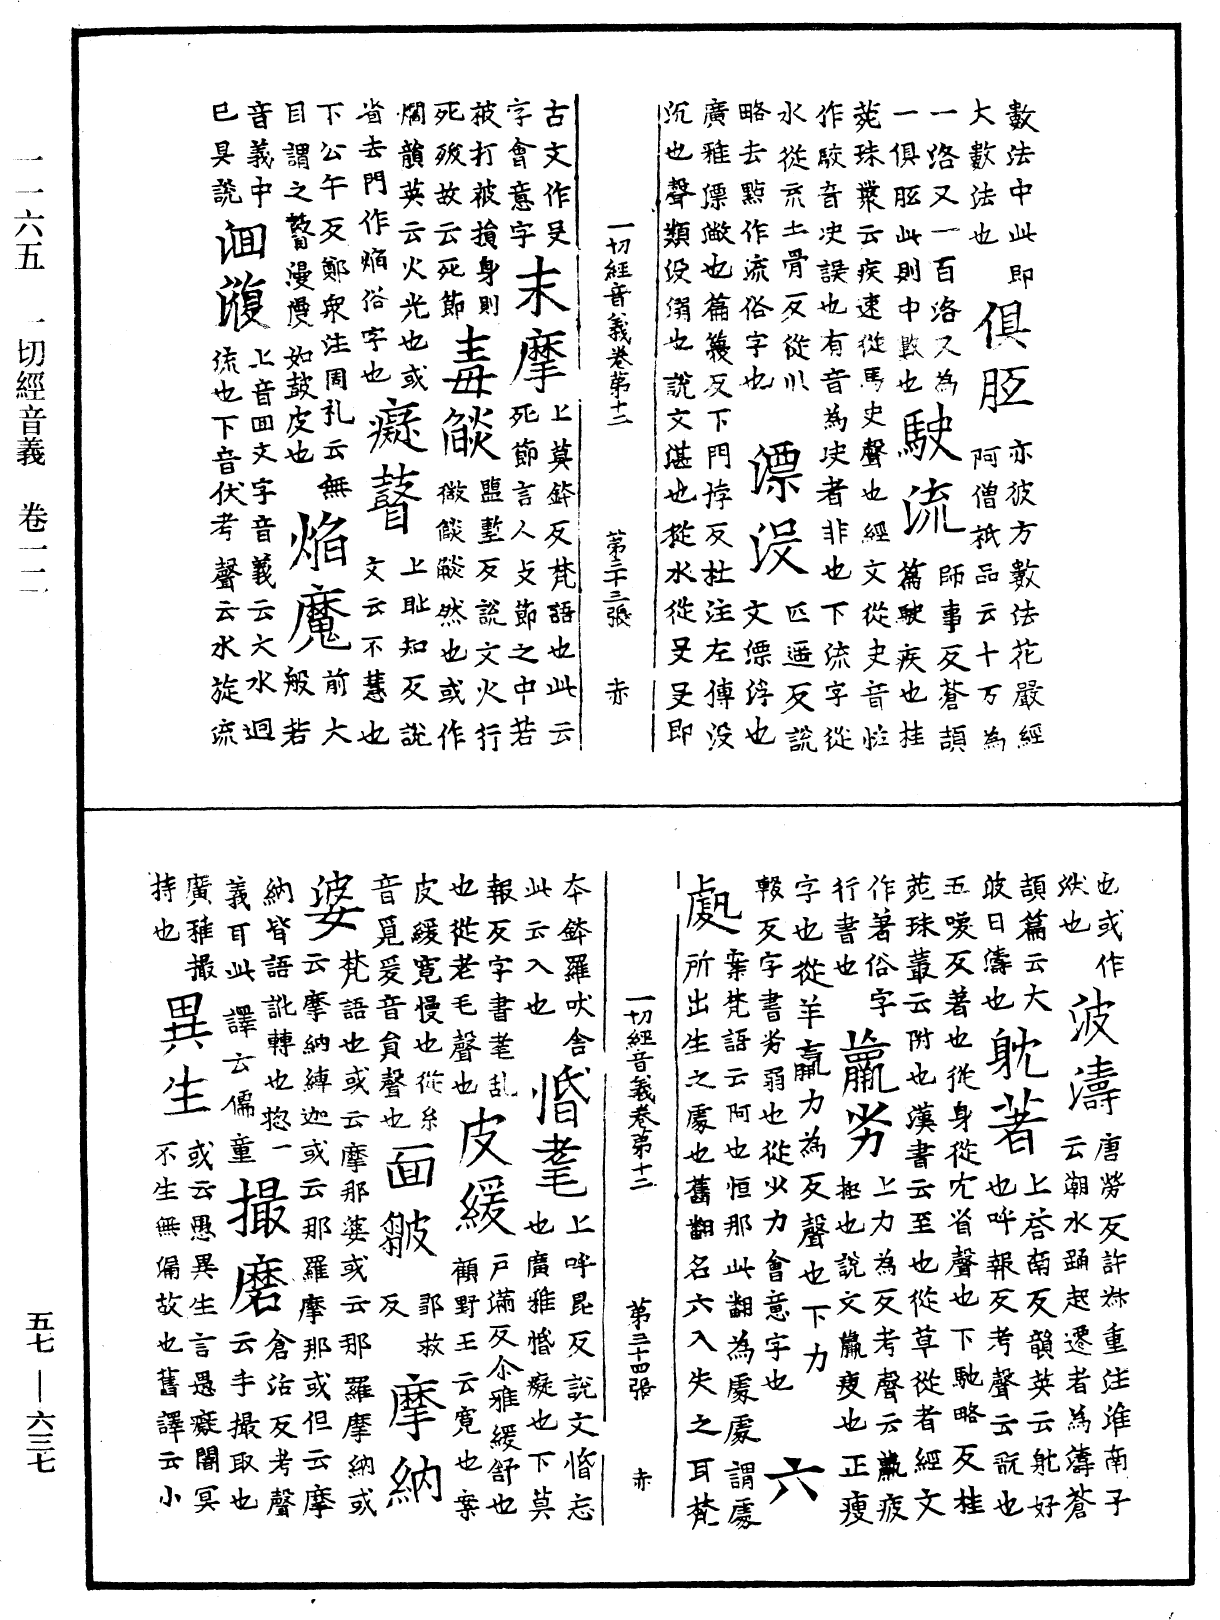 數法中此即
大數法也
俱胝
亦彼方數法花嚴經
阿僧祇品云十万為
一洛叉一百洛叉為
一俱胝此則中數也
駛流
師事反蒼頡
篇駛疾也桂
菀珠叢云疾速從馬史聲也經文從史音怪
作駛音决誤也有音為决者非也下流字從
水從㐬土骨反從巛
略去點作流俗字也
漂沒
匹遥反說
文漂浮也
廣雅漂潎也篇篾反下門悖反杜注左傳没
沉也聲類没溺也說文湛也從水從𠬛𠬛即
一切經音義卷第十二 第三十三張 赤
古文作𠬛
字會意字
末摩
上莫鉢反梵語也此云
死節言人支節之中若
被打被損身則
死歿故云死節
毒燄
鹽塹反說文火行
微燄燄然也或作
爓韻英云火光也或
省去門作焰俗字也
癡瞽
上耻知反說
文云不慧也
下公午反鄭眾注周礼云無
目謂之瞽漫漫如鼓皮也
焰魔
前大
般若
音義中
已具說
洄澓
上音回文字音義云大水迴
流也下音伏考聲云水旋流
也或作
洑也
波濤
唐勞反許叔重注淮南子
云潮水踊起還者為濤蒼
頡篇云大
波曰濤也
躭著
上荅南反韻英云躭好
也呼報反考聲云翫也
五喚反著也從身從冘省聲也下馳略反桂
菀珠叢云附也漢書云至也從草從者經文
作著俗字
行書也
羸劣
上力為反考聲云羸疲
極也說文羸瘦也正瘦
字也從羊𣎆力為反聲也下力
輟反字書劣弱也從少力會意字也
六
處
案梵語云阿也恒那此翻為處處謂處
所出生之處也舊翻名六入失之耳梵
一切經音義卷第十二 第三十四張 赤
本鉢羅吠舍
此云入也
惛耄
上呼昆反說文惛忘
也廣雅惛癡也下莫
報反字書耄乱
也從老毛聲也
皮緩
戶滿反尒雅緩舒也
顧野王云寬也案
皮緩寬慢也從糸
音覓爰音負聲也
面皺
鄒救
反
摩納
婆
梵語也或云摩那婆或云那羅摩納或
云摩納縛迦或云那羅摩那或但云摩
納皆語訛轉也惣一
義耳此譯云儒童
撮磨
倉活反考聲
云手撮取也
廣雅撮
持也
異生
或云愚異生言愚癡闇冥
不生無偏故也舊譯云小
一一六五 一切經音義 卷一二
五七—六三七